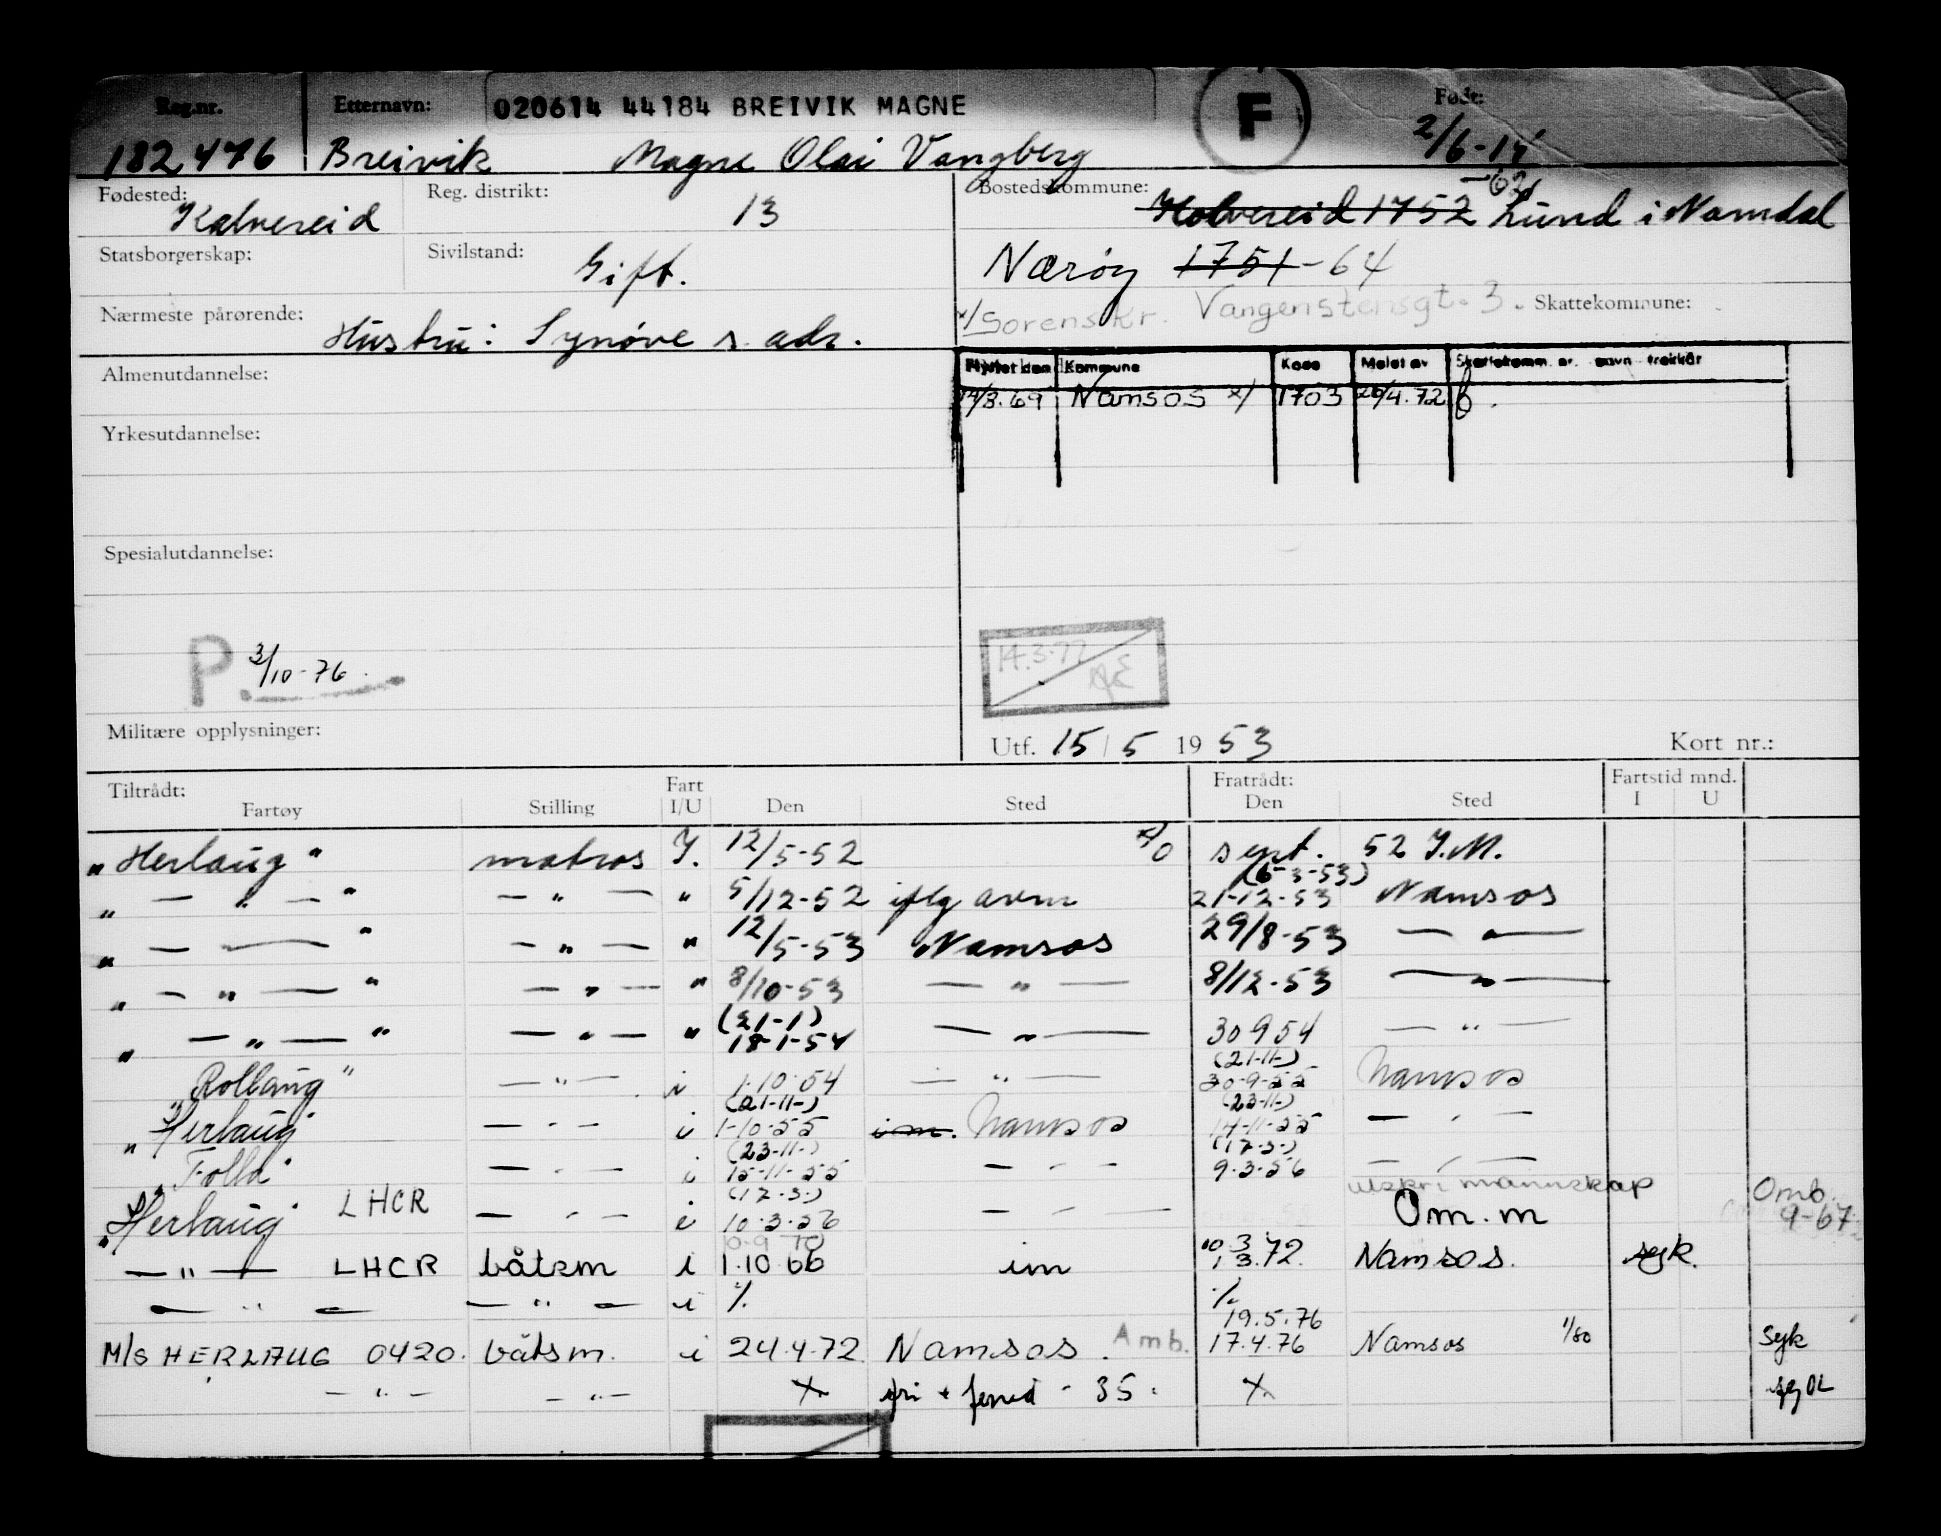 Reg.nr. Etternavn: 020614 44184 BREIVIK MAGNE F Født:
182476 Breivik Magne Olai Vangberg 2/6-14
Fødested: Kolvereid Reg. distrikt: 13 Bostedskommune: Kolvereid 1752 Lund i Namdal
Statsborgerskap: Sivilstand: Gift. Nærøy 1751-64
Nærmeste pårørende: Hustru: Synøve s. adr. x/ Sorenskr. Vangenstensgt. 3. Skattekommune:
Flyttet den Kommune Kode Meldt av Skattekomm. nr. navn trekkår
Almenutdannelse: /3.69 Namsos x/ 1703 20/4.72
Yrkesutdannelse:
Spesialutdannelse:
P. 3/10-76. 14.3.77
Militære opplysninger: Utf. 15/5 1953 Kort nr.:
Tiltrådt: Fart Fratrådt: Fartstid mnd.
Fartøy Stilling I/U Den Sted Den Sted I U
"Herlaug" matros I. 12/5-52 x/0 sept. 52 I.M.
(6-3-53)
" — " — " — " — " 5/12-52 iflg avm 21-12-53 Namsos
" — " — " — " 12/5-53 Namsos 29/8-53 — " —
" — " — " — " — " 8/10-53 — " — 8/12-53 — " —
(21-1)
" — " — " — " — " 18-1-54 — " — 30 9 54 — " —
(21-11-)
"Rollaug" — " — i 1.10.54 — " — 30-9-55 Namsos
(21-11-) (23-11-)
"Herlaug" — " — i 1-10-55 i m. Namsos 14-11-55 — " —
(23-11-) (17-3-)
"Folla" — " — i 15-11-55 — " — 9.3.56 — " —
(17-3-) utskr. i mannskap Omb.
"Herlaug" LHCR — " — i 10-3-56 — " — Om. m 9-67
0.9 70 10 3 72
— " — LHCR båtsm i 1.10 66 im 1 3.72. Namsos. syk.
— " — — " — i ·/. ·/.
19.5.76
M/S HERLAUG 0420. båtsm. i 24.4.72 Namsos. Amb. 17.4.76 Namsos 1/80 Syk
— " — — " — X fri + feried - 35. X